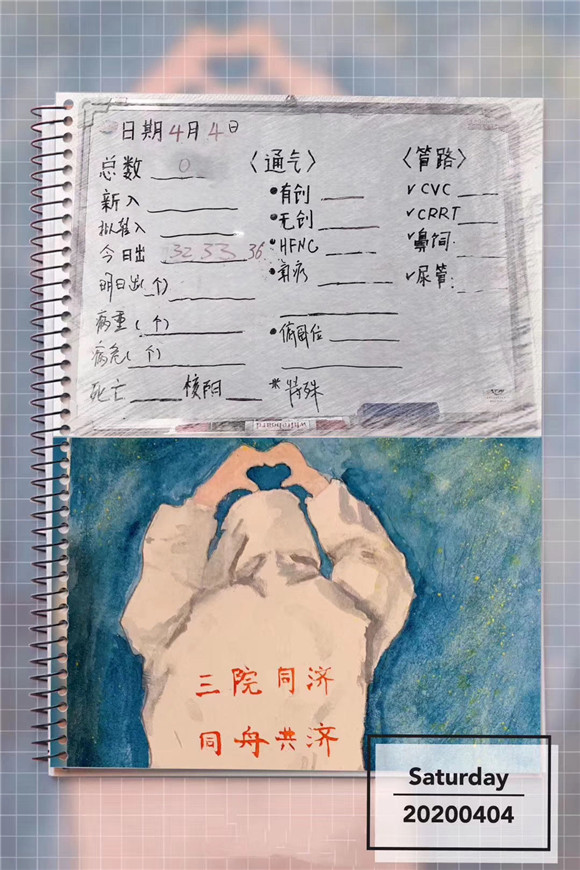 日期4月4日
总数 0 〈通气〉 〈管路〉
新入 •有创 ✓CVC
拟转入 •无创 ✓CRRT
今日出 32 33 36 •HFNC ✓鼻饲:
明日出(个) •氧疗 ✓尿管:
病重(个)
病危(个) •俯卧位
死亡 核阴 *特殊
whiteboard
三院同济
同舟共济
Saturday
20200404